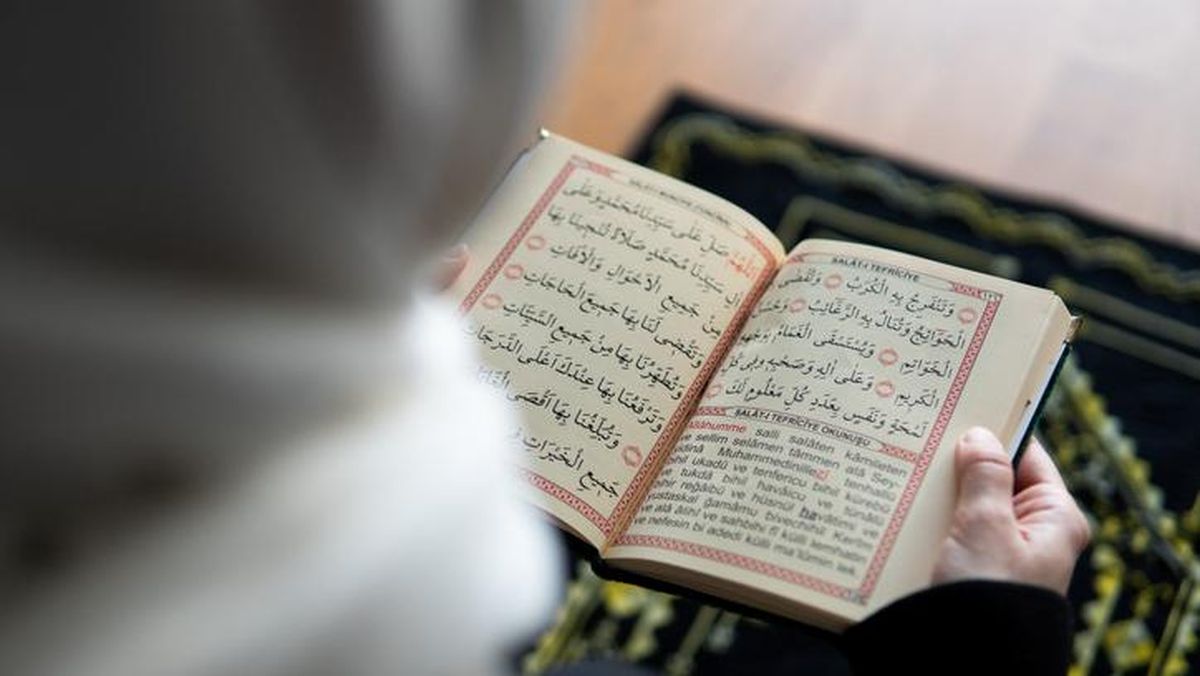 اَللّٰهُمَّ صَلِّ عَلٰى سَيِّدِنَا مُحَمَّدٍ وَعَلٰى
اٰلِ سَيِّدِنَا مُحَمَّدٍ صَلَاةً تُنْجِينَا بِهَا
مِنْ جَمِيعِ الْاَحْوَالِ وَالْاٰفَاتِ
وَتَقْضِى لَنَا بِهَا جَمِيعَ الْحَاجَاتِ
وَتُطَهِّرُنَا بِهَا مِنْ جَمِيعِ السَّيِّئَاتِ
وَتَرْفَعُنَا بِهَا عِنْدَكَ اَعْلَى الدَّرَجَاتِ
وَتُبَلِّغُنَا بِهَا اَقْصَى
جَمِيعِ الْخَيْرَاتِ
SALÂT-I TEFRİCİYE
وَتَنْفَرِجُ بِهِ الْكُرَبُ وَتُقْضٰى
بِهِ الْحَوَائِجُ وَتُنَالُ بِهِ الرَّغَائِبُ وَحُسْنُ
الْخَوَاتِمِ وَيُسْتَسْقَى الْغَمَامُ بِوَجْهِهِ
الْكَرِيمِ وَعَلٰى اٰلِهِ وَصَحْبِهِ فِى كُلِّ
لَمْحَةٍ وَنَفَسٍ بِعَدَدِ كُلِّ مَعْلُومٍ لَكَ
SALÂT-I TEFRİCİYE OKUNUŞU
salli salâten kâmileten
ve sellim selâmen tâmmen alâ Sey-
Muhammedinillezi tenhallü
bihil ukadü ve tenfericu bihil kürebü
ve tukdâ bihil havâicu ve tünâlü
reğâibü ve hüsnül havâtimi ve
yustaskal ğamâmu bivechihil Kerim
ve alâ âlihi ve sahbihi fî külli lemhatin
ve nefesin bi adedi külli ma'lûmin lek